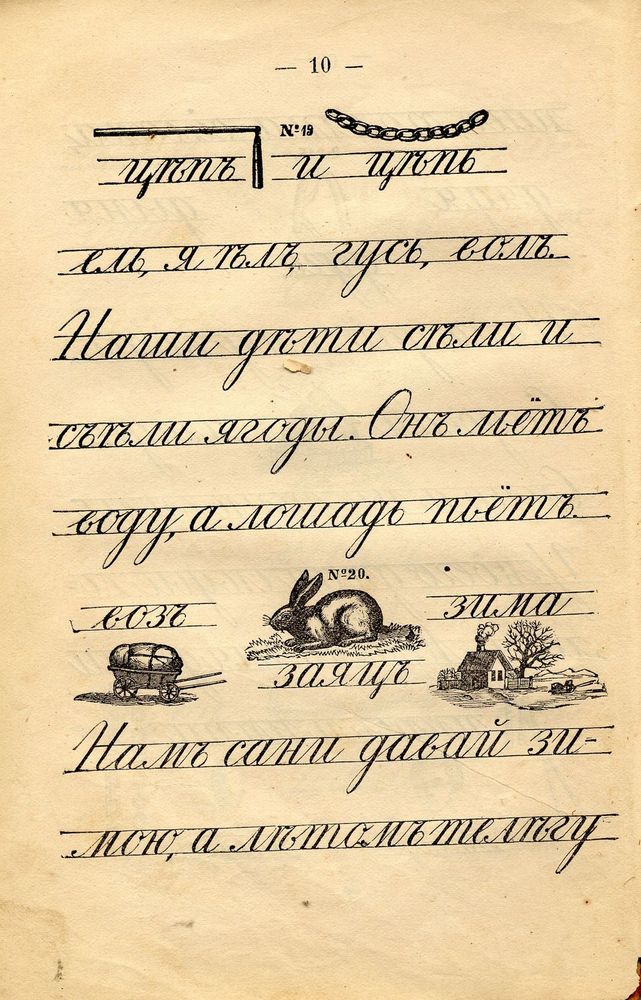 — 10 —
№ 19
цѣпъ и цѣпь
ель, я ѣлъ, гусь, волъ.
Наши дѣти сѣли и
съѣли ягоды. Онъ льётъ
воду, а лошадь пьётъ.
№ 20.
возъ заяцъ зима
Намъ сани давай зи-
мою, а лѣтомъ телѣгу